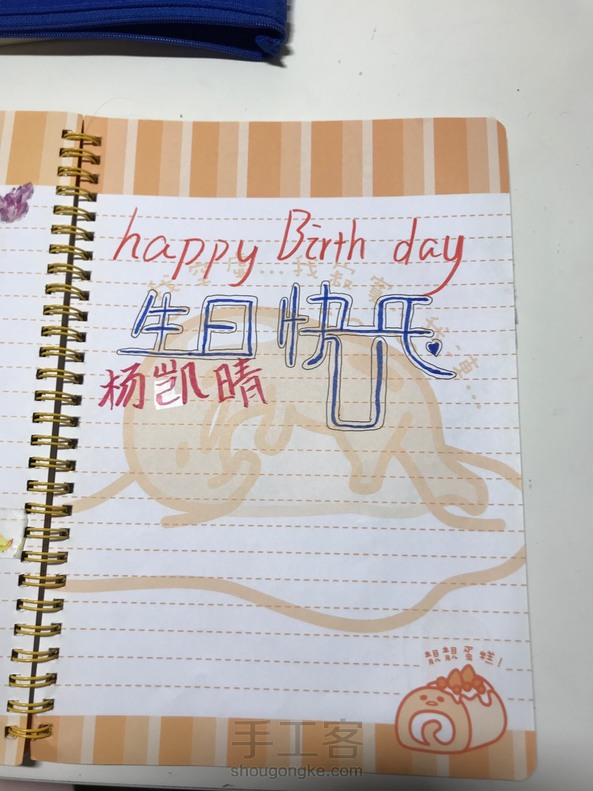 happy Birth day
生日快乐
杨凯晴
想想蛋糕!
手工客
shougongke.com